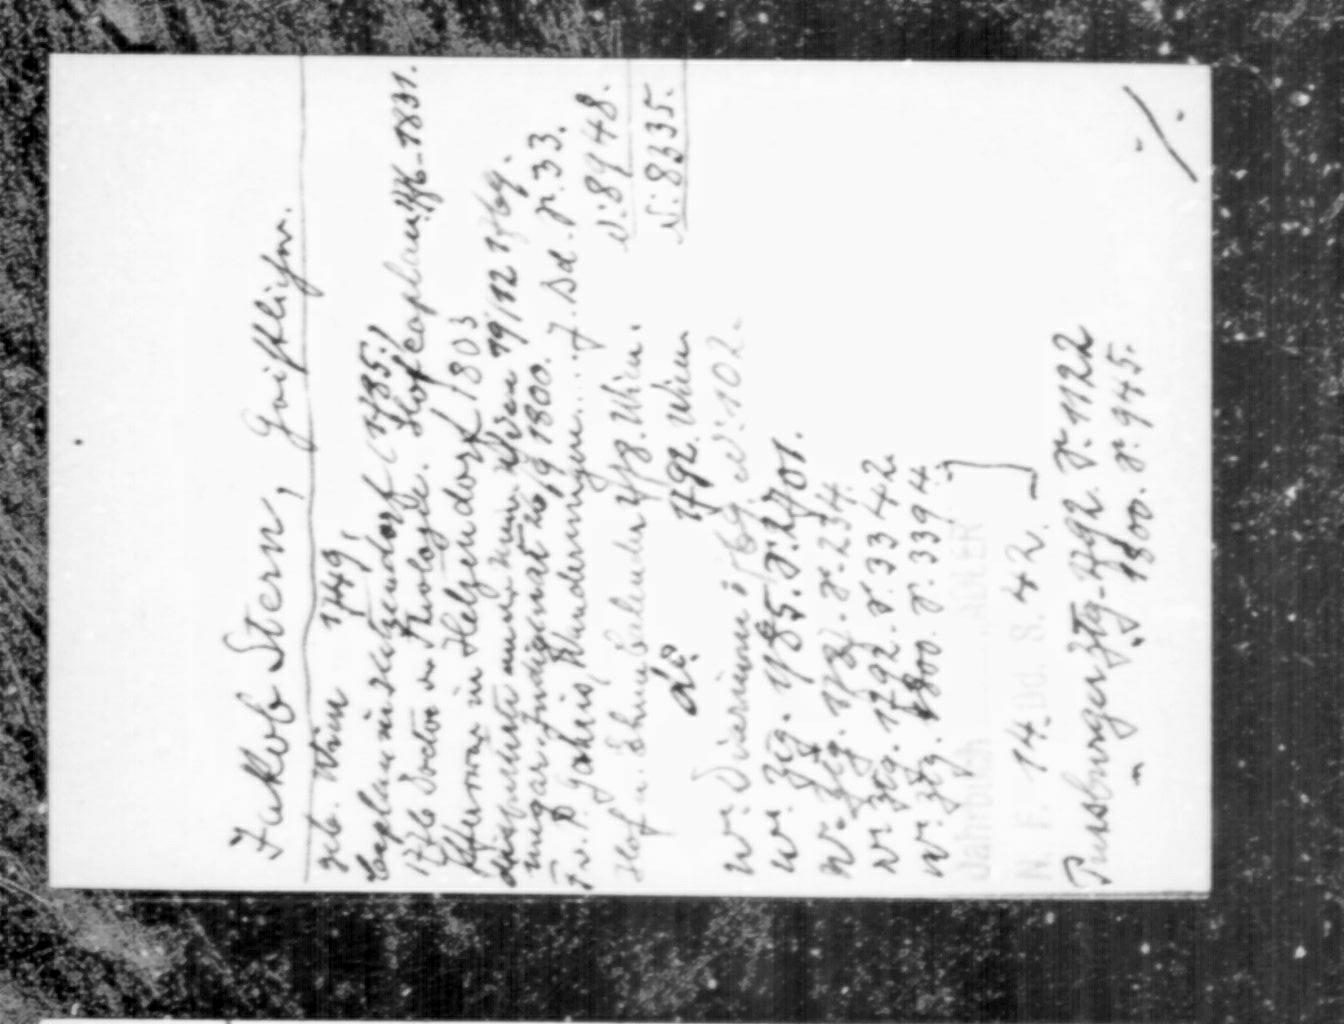 Jakob Stern, Geistlicher.
geb. Wien 1749,
Caplan in Hetzendorf (1785)
1776 Doctor der Theologie. Hofcaplan 1776-1831.
Pfarrer in Helzendorf 1803
Univ. Wien 19/12 1769.
ungar. Indigenat 20/9 1800.
F. v. P. Gaheis, Wanderungen.... 7. Bd. p. 33.
Hof u. Ehrenkalender Wien. N: 8948.
do 1792. Wien N: 8335.
W. Diarium 1769 N: 102.
W. Ztg. 1785. S. 2701.
W. Ztg. S. 234.
W. Ztg. 1792. S. 3342
W. Ztg. 1800. S. 3394
Jahrbuch ADLER
N. F. 14. Bd. S. 42.
Pressburger Ztg. 1792. S. 1122
" " 1800. S. 945.